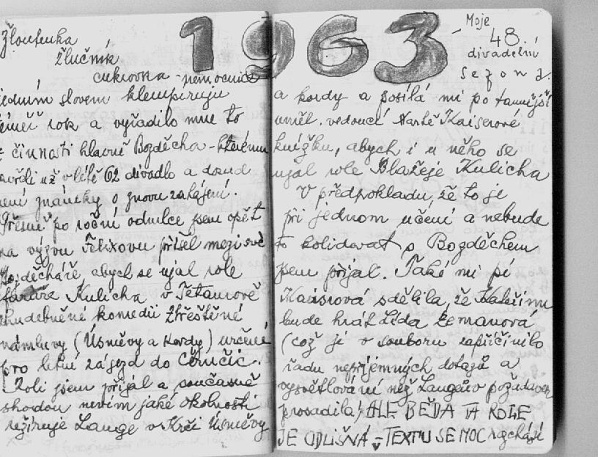 1963
Žloutenka
žlučník
cukrovka - nemocnice
jedním slovem klempíruju
téměř rok a vyřadilo mne to
z činnosti hlavně Bogděcha - kterému
zavřeli už v létě 62 divadlo a dosud
není známky o znovu zahájení.
Přesně po roční odmlce jsem opět
na výzvu Felixovu přišel mezi své
Bogděcháře, abych se ujal role
faráře Kulicha v Tetaurově
zhudebněné komedii Ztřeštěné
námluvy (Úsměvy a kordy) určené
pro letní zájezd do
Roli jsem přijal a současně
shodou nevím jaké okolnosti
režíruje Lange v Krči Úsměvy
Moje
48.
divadelní
sezona.
a kordy a posílá mi po tamější
uměl. vedoucí Kaiserové
knížku, abych i u něho se
ujal role Blažeje Kulicha
V předpokladu, že to je
při jednom učení a nebude
to kolidovat s Bogděchem
jsem přijal. Také mi pí
Kaiserová sdělila, že
bude hrát Lída Zemanová
(což je v souboru zapříčinilo
řadu nepříjemných dotazů a
vysvětlování než Langův požadavek
prosadila) ALE BĚDA TA ROLE
JE ODLIŠNÁ - TEXTY SE MOC rozchází